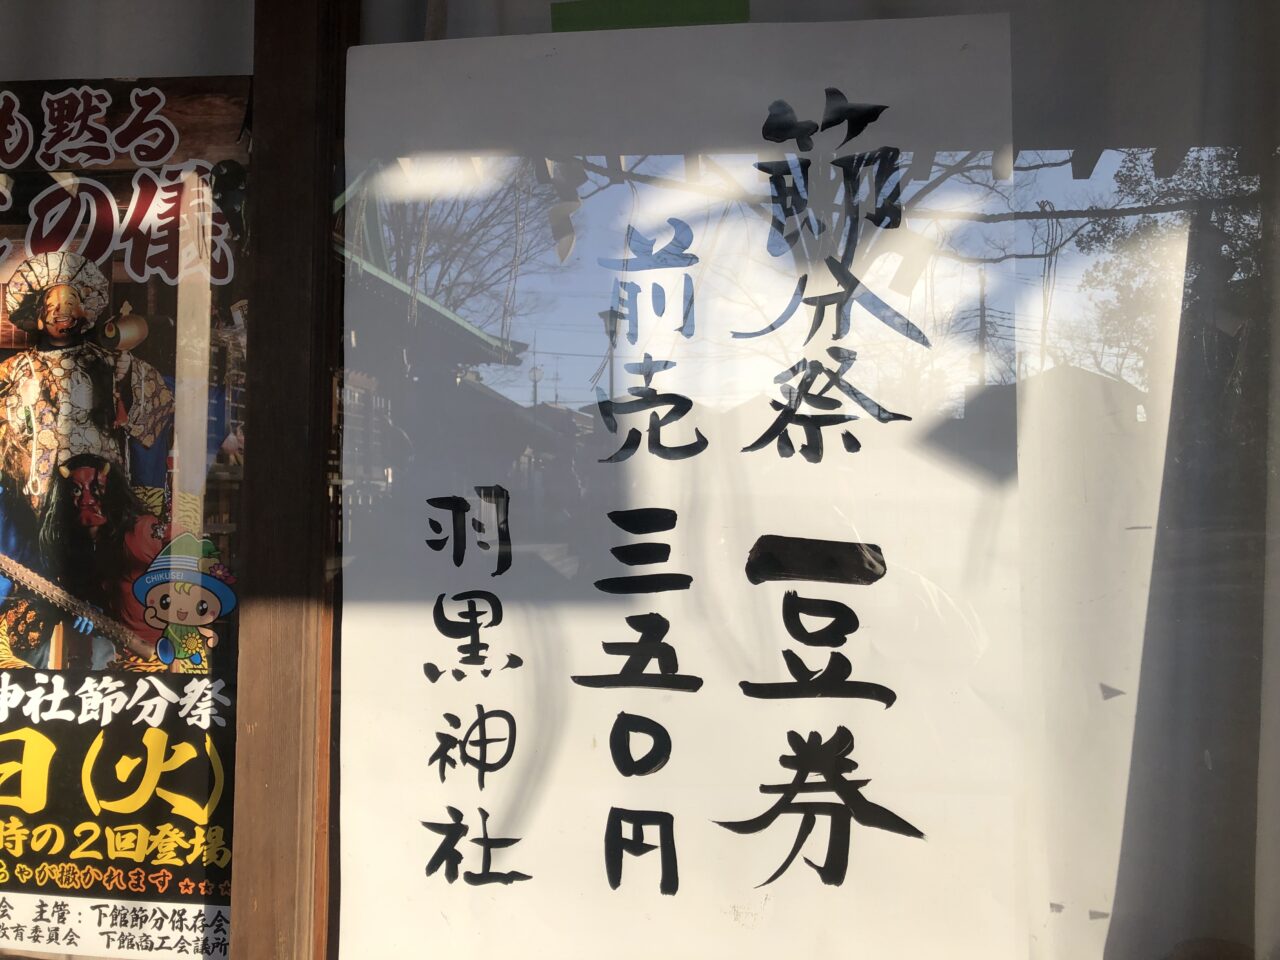 節分祭 一豆券
前売 三五〇円
羽黒神社
も黙る
の儀
CHIKUSEI
神社節分祭
日(火)
時の2回登場
ちゃが撒かれます☆☆☆
会 主管:下館節分保存会
教育委員会 下館商工会議所